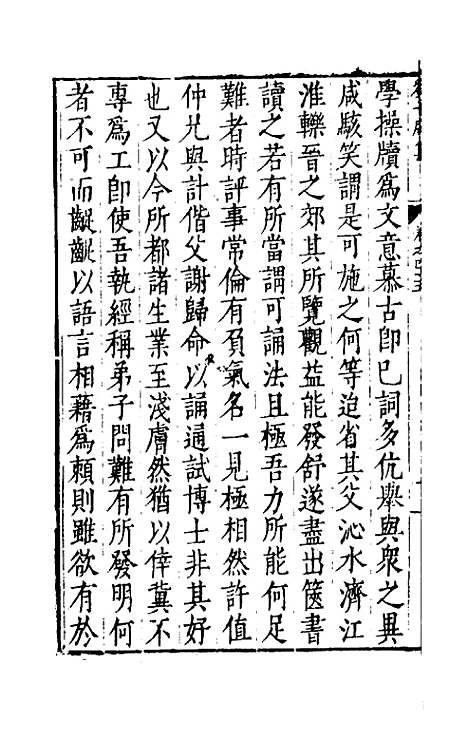 學操牘為文意慕古卽巳詞多伉舉與衆之異
咸駭笑謂是可施之何等迨省其父沁水濟江
淮轢晉之郊其所覽觀益能發舒遂盡出篋書
讀之若有所當謂可誦法且極吾力所能何足
難者時評事常倫有負氣名一見極相然許值
仲兄與計偕父謝歸命以誦通試博士非其好
也又以今所都諸生業至淺膚然猶以倖冀不
專爲工卽使吾執經稱弟子問難有所發明何
者不可而齪齪以語言相藉爲賴則雖欲有於